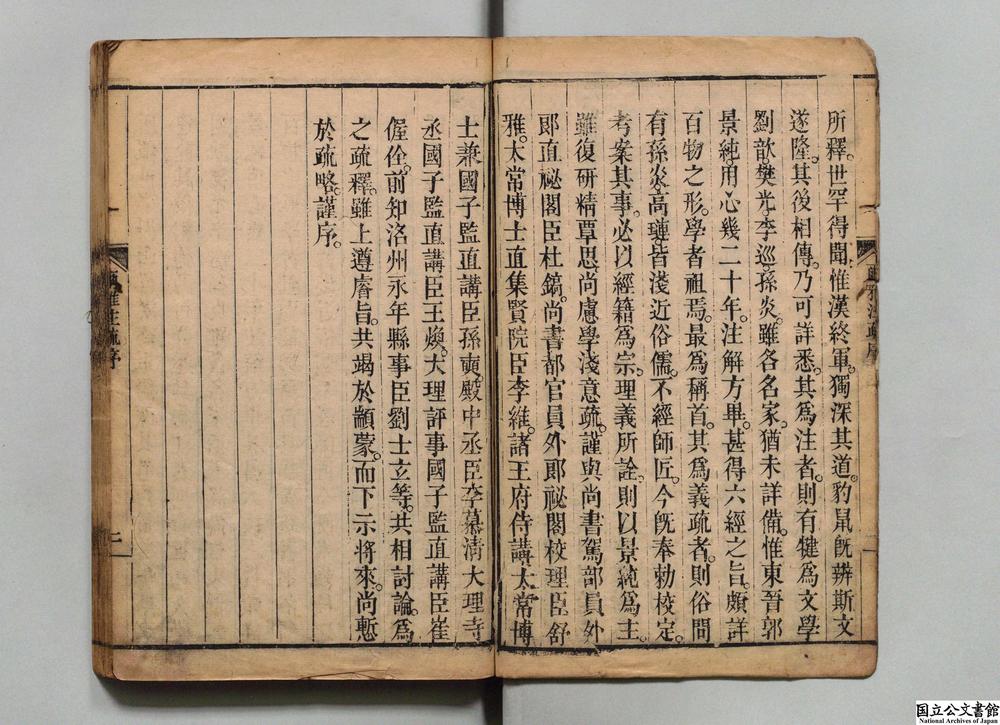 所釋。世罕得聞惟漢終軍獨深其道豹鼠旣辨斯文
遂隆。其後相傳。乃可詳悉。其爲注者。則有犍爲文學
劉歆樊光李廵孫炎。雖各名家。猶未詳備。惟東晉郭
景純。用心幾二十年。注解方畢。甚得六經之旨。頗詳
百物之形。學者祖焉。最爲稱首。其爲義疏者。則俗間
有孫炎高璉。皆淺近俗儒。不經師匠。今旣奉勅校定。
考案其事。必以經籍爲宗。理義所詮。則以景純爲主。
雖復研精覃思尚慮學淺意疏。謹與尚書駕部員外
郎直祕閣臣杜鎬。尚書都官員外郎祕閣校理臣舒
雅。太常博士直集賢院臣李維諸王府侍講太常博
士兼國子監直講臣孫奭殿中丞臣李慕清大理寺
丞國子監直講臣王煥。大理評事國子監直講臣崔
偓佺。前知洺州永年縣事臣劉士玄等。共相討論。爲
之疏釋。雖上遵睿旨。共竭於顓蒙。而下示將來。尚慙
於疏略。謹序。
爾雅注疏序
爾雅注疏序
二
国立公文書館
National Archives of Japan